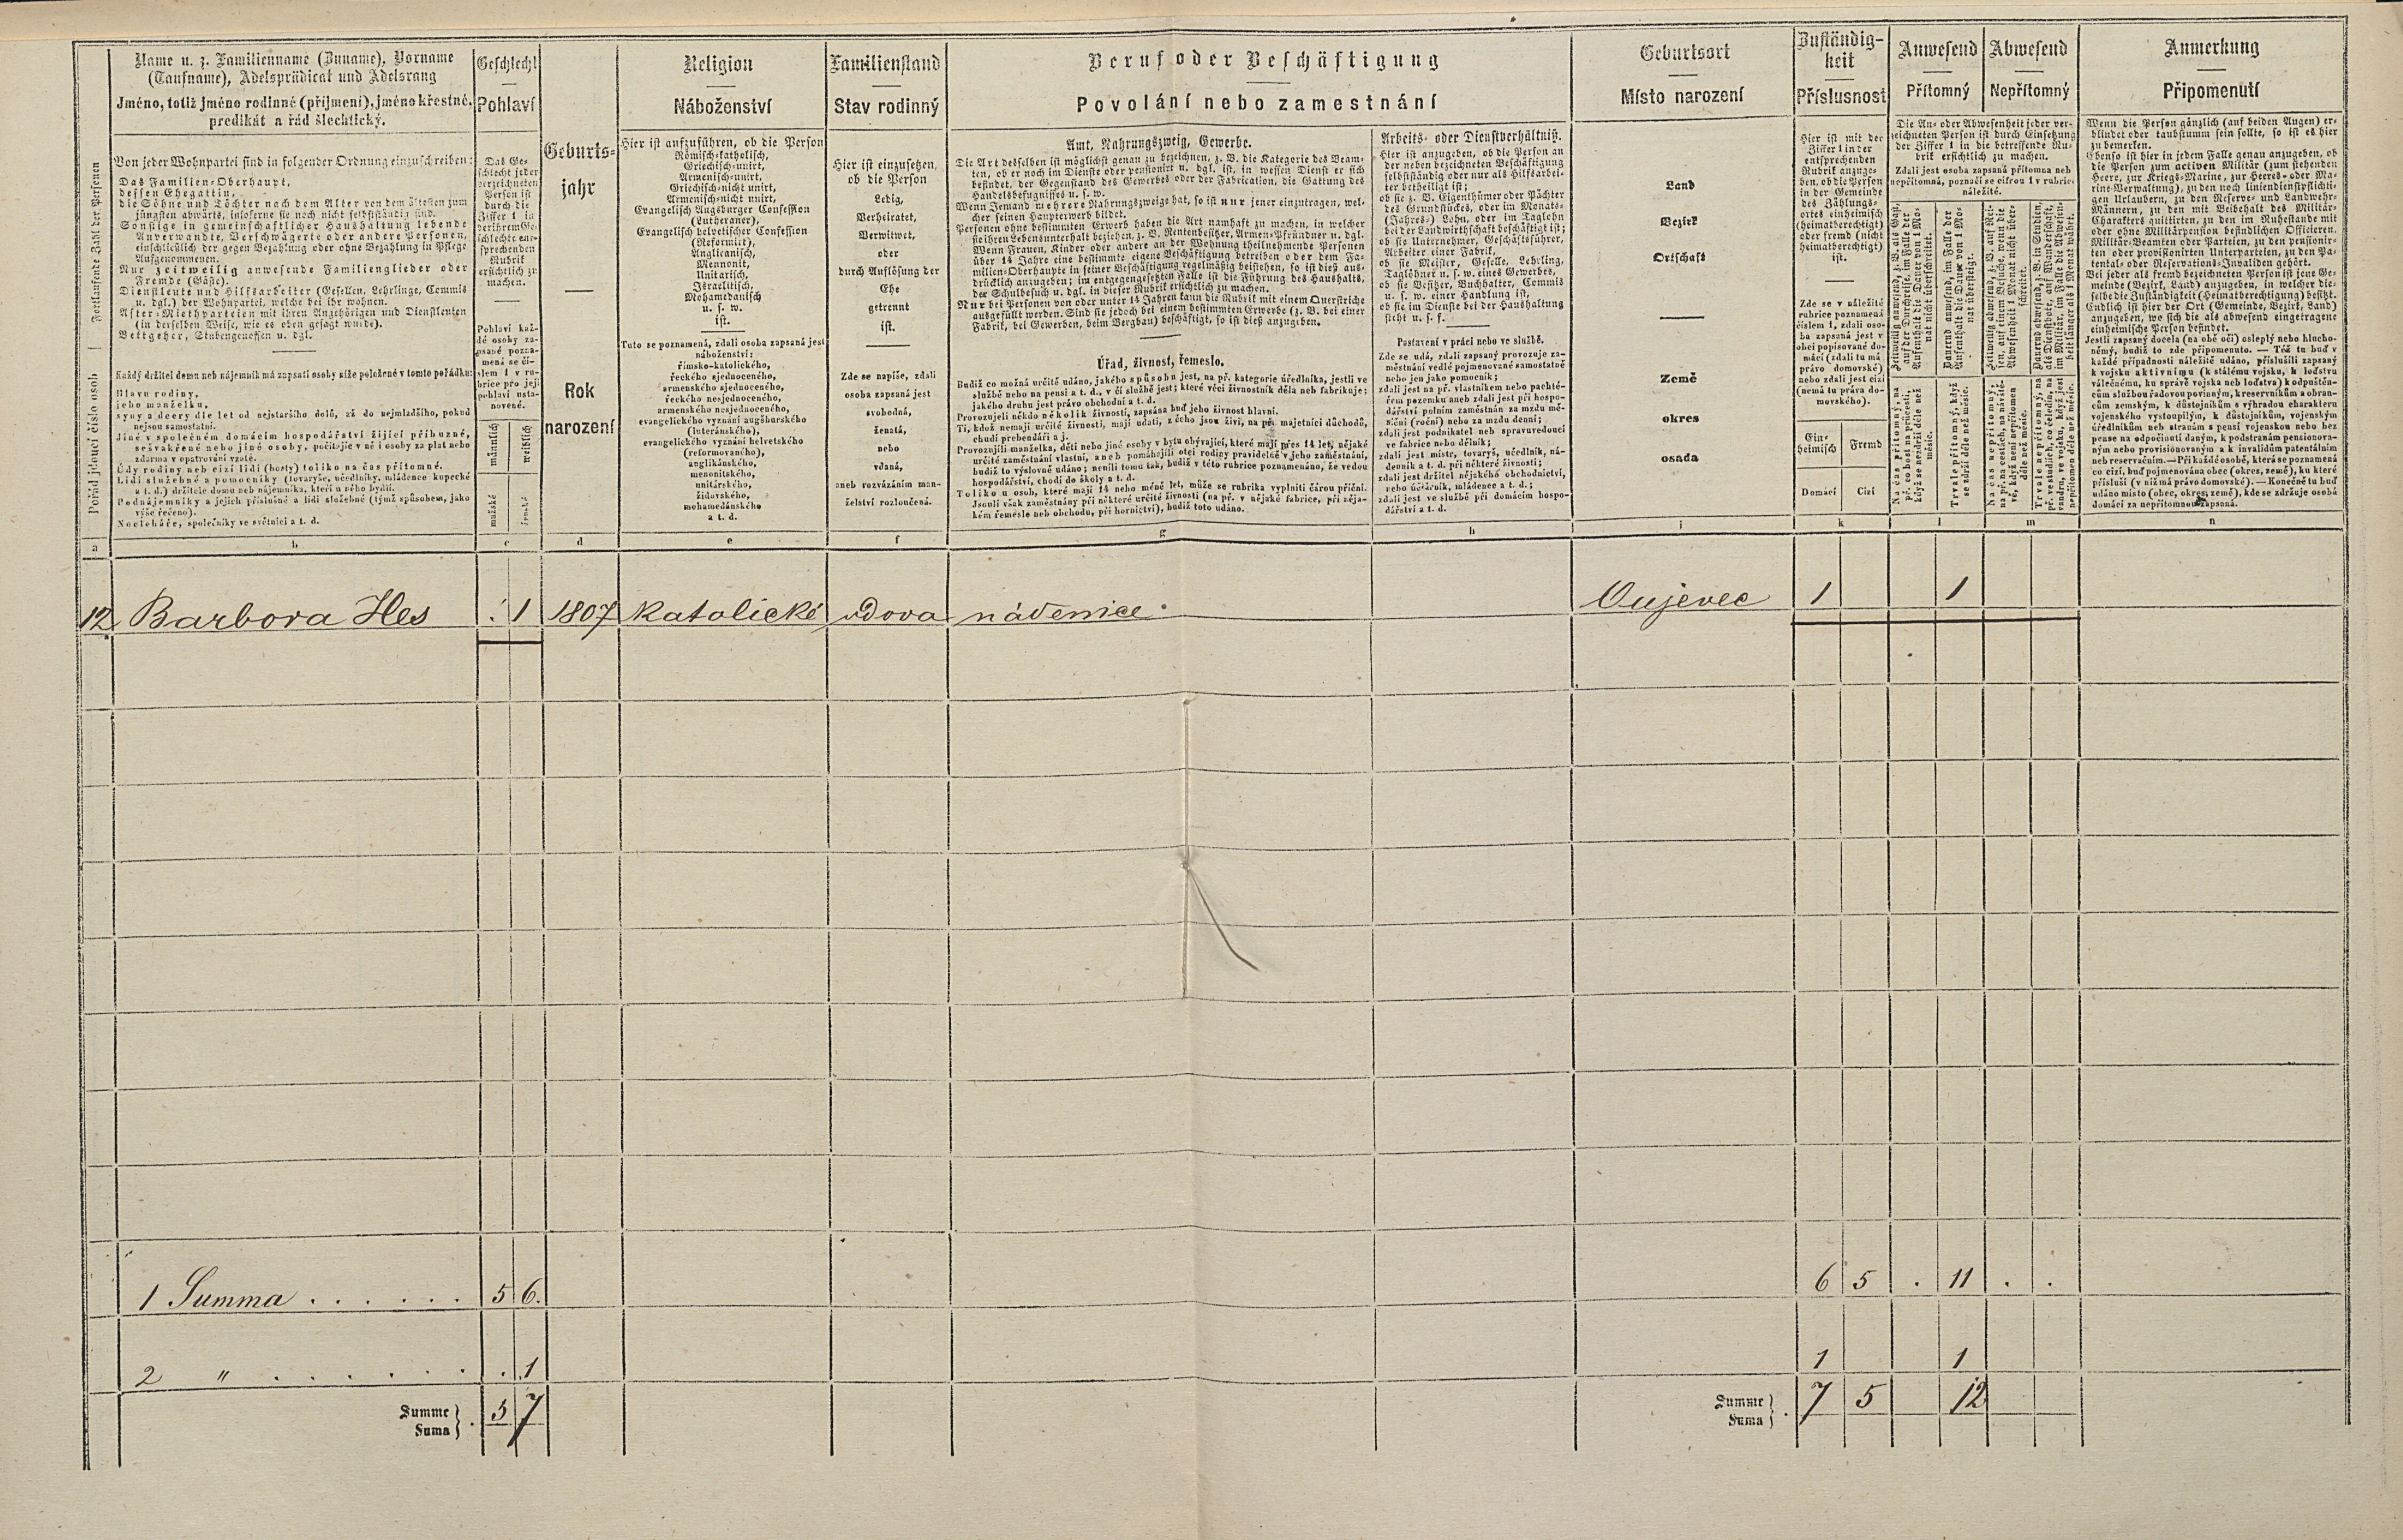 Name u. z. Familienname (Zuname), Vorname
(Taufname), Adelsprädicat und Adelsrang
Jméno, totiž jméno rodinné (příjmení), jméno křestné,
predikát a řád šlechtický.
Geschlecht
Pohlaví
Geburts-
jahr
Rok
narození
Religion
Náboženství
Familienstand
Stav rodinný
Beruf oder Beschäftigung
Povolání nebo zamestnání
Geburtsort
Místo narození
Zuständig-
keit
Příslusnost
Anwesend
Přítomný
Abwesend
Nepřítomný
Anmerkung
Připomenutí
Fortlaufende Zahl der Personen
Pořád jdoucí číslo osob
Von jeder Wohnpartei sind in folgender Ordnung einzuschreiben:
Das Familien-Oberhaupt,
dessen Ehegattin,
die Söhne und Töchter nach dem Alter von dem ältesten zum
jüngsten abwärts, insoferne sie noch nicht selbstständig sind.
Sonstige in gemeinschaftlicher Haushaltung lebende
Anverwandte, Verschwägerte oder andere Personen,
einschließlich der gegen Bezahlung oder ohne Bezahlung in Pflege
Aufgenommenen.
Nur zeitweilig anwesende Familienglieder oder
Fremde (Gäste).
Dienstleute und Hilfsarbeiter (Gesellen, Lehrlinge, Commis
u. dgl.) der Wohnpartei, welche bei ihr wohnen.
After-Miethparteien mit ihren Angehörigen und Dienstleuten
(in derselben Weise, wie es oben gesagt wurde).
Bettgeher, Stubengenossen u. dgl.
Každý držitel domu neb nájemník má zapsati osoby níže položené v tomto pořádku:
Hlavu rodiny,
jeho manželku,
syny a dcery dle let od nejstaršího dolů, až do nejmladšího, pokud
nejsou samostatni.
Jiné v společném domácím hospodářství žijící příbuzné,
sešvakřené nebo jiné osoby, počítajíc v ně i osoby za plat nebo
zdarma v opatrování vzaté.
Údy rodiny neb cizí lidi (hosty) toliko na čas přítomné.
Lidi služebné a pomocníky (tovaryše, učedlníky, mládence kupecké
a t. d.) držitele domu neb nájemníka, kteří u něho bydlí.
Podnájemníky a jejich příslušné a lidi služebné (týmž spůsobem, jako
výše řečeno).
Nocleháře, společníky ve světnici a t. d.
Das Ge-
schlecht jeder
verzeichneten
Person ist
durch die
Ziffer 1 in
der ihrem Ge-
schlechte ent-
sprechenden
Rubrik
ersichtlich zu
machen.
Pohlaví kaž-
dé osoby za-
psané pozna-
mená se čí-
slem 1 v ru-
brice pro její
pohlaví usta-
novené.
männlich
weiblich
mužské
ženské
Hier ist aufzuführen, ob die Person
Römisch-katholisch,
Griechisch-unirt,
Armenisch-unirt,
Griechisch-nicht unirt,
Armenisch-nicht unirt,
Evangelisch Augsburger Confession
(Lutheraner),
Evangelisch helvetischer Confession
(Reformirt),
Anglicanisch,
Mennonit,
Unitarisch,
Israelitisch,
Mohamedanisch
u. s. w.
ist.
Tuto se poznamená, zdali osoba zapsaná jest
náboženství:
římsko-katolického,
řeckého sjednoceného,
armenského sjednoceného,
řeckého nesjednoceného,
armenského nesjednoceného,
evangelického vyznání augšburského
(luteránského),
evangelického vyznání helvetského
(reformovaného),
anglikánského,
menonitského,
unitárského,
židovského,
mohamedánského
a t. d.
Hier ist einzusetzen,
ob die Person
Ledig,
Verheiratet,
Verwitwet,
oder
durch Auflösung der
Ehe
getrennt
ist.
Zde se napíše, zdali
osoba zapsaná jest
svobodná,
ženatá,
nebo
vdaná,
aneb rozvázáním man-
želství rozloučená.
Amt, Nahrungszweig, Gewerbe.
Die Art desselben ist möglichst genau zu bezeichnen, z. B. die Kategorie des Beam-
ten, ob er noch im Dienste oder pensionirt u. dgl. ist, in wessen Dienst er sich
befindet, der Gegenstand des Gewerbes oder der Fabrication, die Gattung des
Handelsbefugnisses u. s. w.
Wenn Jemand mehrere Nahrungszweige hat, so ist nur jener einzutragen, wel-
cher seinen Haupterwerb bildet.
Personen ohne bestimmten Erwerb haben die Art namhaft zu machen, in welcher
sie ihren Lebensunterhalt beziehen, z. B. Rentenbesitzer, Armen-Pfründner u. dgl.
Wenn Frauen, Kinder oder andere an der Wohnung theilnehmende Personen
über 14 Jahre eine bestimmte eigene Beschäftigung betreiben oder dem Fa-
milien-Oberhaupte in seiner Beschäftigung regelmäßig beistehen, so ist dieß aus-
drücklich anzugeben; im entgegengesetzten Falle ist die Führung des Haushalts,
der Schulbesuch u. dgl. in dieser Rubrik ersichtlich zu machen.
Nur bei Personen von oder unter 14 Jahren kann die Rubrik mit einem Querstriche
ausgefüllt werden. Sind sie jedoch bei einem bestimmten Erwerbe (z. B. bei einer
Fabrik, bei Gewerben, beim Bergbau) beschäftigt, so ist dieß anzugeben.
Úřad, živnost, řemeslo.
Budiž co možná určitě udáno, jakého spůsobu jest, na př. kategorie úředlníka, jestli ve
službě nebo na pensi a t. d., v čí službě jest; které věci živnostník dělá neb fabrikuje;
jakého druhu jest právo obchodní a t. d.
Provozujeli někdo několik živností, zapsána buď jeho živnost hlavní.
Ti, kdož nemají určité živnosti, mají udati, z čeho jsou živi, na př. majetníci důchodů,
chudí prebendáři a j.
Provozujíli manželka, děti nebo jiné osoby v bytu obývající, které mají přes 14 let, nějaké
určité zaměstnání vlastní, aneb pomáhajíli otci rodiny pravidelně v jeho zaměstnání,
budiž to výslovně udáno; neníli tomu tak, budiž v této rubrice poznamenáno, že vedou
hospodářství, chodí do školy a t. d.
Toliko u osob, které mají 14 nebo méně let, může se rubrika vyplniti čárou příční.
Jsouli však zaměstnány při některé určité živnosti (na př. v nějaké fabrice, při něja-
kém řemesle neb obchodu, při hornictví), budiž toto udáno.
Arbeits- oder Dienstverhältniß.
Hier ist anzugeben, ob die Person an
der neben bezeichneten Beschäftigung
selbstständig oder nur als Hilfsarbei-
ter betheiligt ist;
ob sie z. B. Eigenthümer oder Pächter
des Grundstückes, oder im Monats-
(Jahres-) Lohn, oder im Taglohn
bei der Landwirthschaft beschäftigt ist;
ob sie Unternehmer, Geschäftsführer,
Arbeiter einer Fabrik,
ob sie Meister, Geselle, Lehrling,
Taglöhner u. s. w. eines Gewerbes,
ob sie Besitzer, Buchhalter, Commis
u. s. w. einer Handlung ist,
ob sie im Dienste bei der Haushaltung
steht u. s. f.
Postavení v práci nebo ve službě.
Zde se udá, zdali zapsaný provozuje za-
městnání vedlé pojmenované samostatně
nebo jen jako pomocník;
zdali jest na př. vlastníkem nebo pachté-
řem pozemku aneb zdali jest při hospo-
dářství polním zaměstnán za mzdu mě-
síční (roční) nebo za mzdu denní;
zdali jest podnikatel neb spravuvedoucí
ve fabrice nebo dělník;
zdali jest mistr, tovaryš, učedlník, ná-
denník a t. d. při některé živnosti;
zdali jest držitel nějského obchodnictví,
nebo účetník, mládenec a t. d.;
zdali jest ve službě při domácím hospo-
dářství a t. d.
Land
Bezirk
Ortschaft
Země
okres
osada
Hier ist mit der
Ziffer 1 in der
entsprechenden
Rubrik anzuge-
ben, ob die Person
in der Gemeinde
des Zählungs-
ortes einheimisch
(heimatberechtigt)
oder fremd (nicht
heimatberechtigt)
ist.
Zde se v náležité
rubrice poznamená
číslem 1, zdali oso-
ba zapsaná jest v
obci popisované do-
mácí (zdali tu má
právo domovské)
nebo zdali jest cizí
(nemá tu práva do-
movského).
Ein-
heimisch
Fremd
Domácí
Cizí
Die An- oder Abwesenheit jeder ver-
zeichneten Person ist durch Einsetzung
der Ziffer 1 in die betreffende Ru-
brik ersichtlich zu machen.
Zdali jest osoba zapsaná přítomna neb
nepřítomná, poznačí se cifrou 1 v rubrice
náležité.
Wenn die Person gänzlich (auf beiden Augen) er-
blindet oder taubstumm sein sollte, so ist es hier
zu bemerken.
Ebenso ist hier in jedem Falle genau anzugeben, ob
die Person zum activen Militär (zum stehenden
Heere, zur Kriegs-Marine, zur Heeres- oder Ma-
rine-Verwaltung), zu den noch liniendienstpflichti-
gen Urlaubern, zu den Reserve- und Landwehr-
Männern, zu den mit Beibehalt des Militär-
Charakters quittirten, zu den im Ruhestande mit
oder ohne Militärpension befindlichen Officieren,
Militär-Beamten oder Parteien, zu den pensionir-
ten oder provisionirten Unterparteien, zu den Pa-
tental- oder Reservations-Invaliden gehört.
Bei jeder als fremd bezeichneten Person ist jene Ge-
meinde (Bezirk, Land) anzugeben, in welcher die-
selbe die Zuständigkeit (Heimatberechtigung) besitzt.
Endlich ist hier der Ort (Gemeinde, Bezirk, Land)
anzugeben, wo sich die als abwesend eingetragene
einheimische Person befindet.
a b c d e f g h i k l m n
12 Barbora Hles . 1 1807 katolické vdova nádenice Oujevec 1 1
1 Summa . . . . . . 5 6. 6 5 . 11 . .
2 " . . . . . . . 1 1 1
Summe
Suma
5 7
Summe
Suma
7 5 12